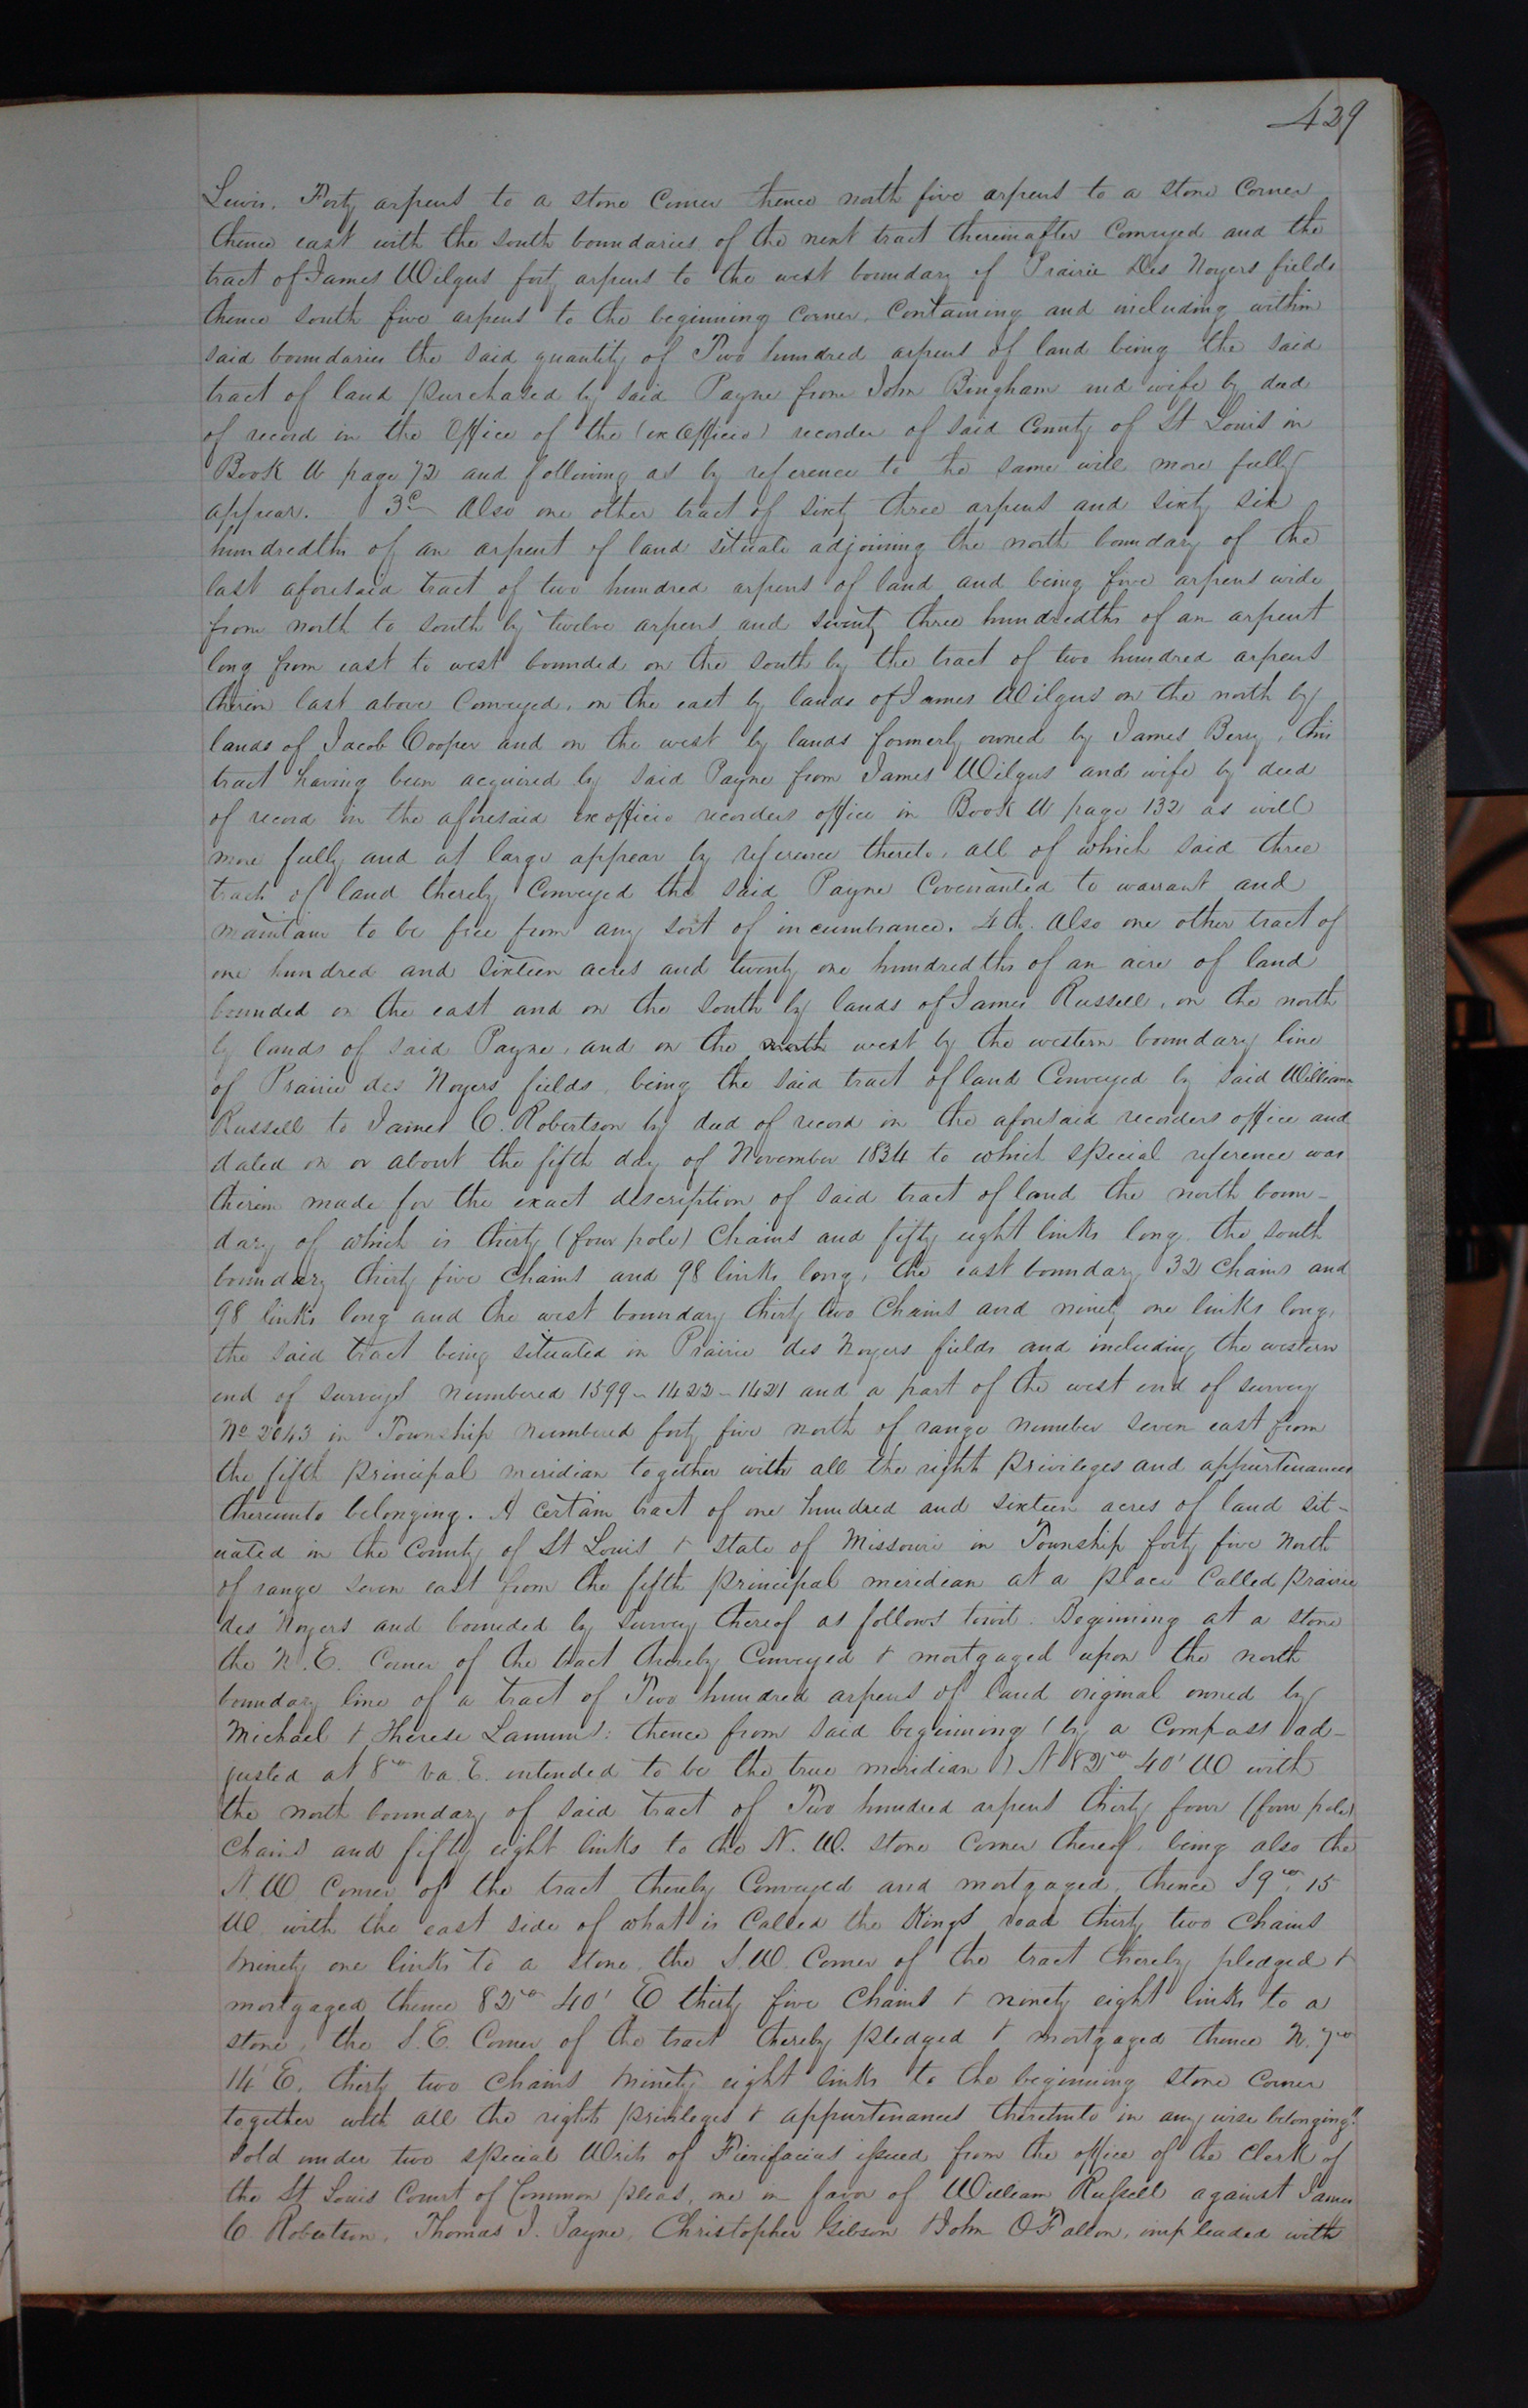 429
Lewis. Forty arpens to a stone Corner thence north five arpens to a stone Corner
thence east with the south boundaries of the next tract thereinafter Conveyed and the
tract of James Wilgus forty arpens to the west boundary of Prairie Des Noyers fields
thence south five arpens to the beginning Corner. Containing and including within
said boundaries the said quantity of Two hundred arpens of land being the said
tract of land purchased by said Payne from John Bingham and wife by deed
of record in the Office of the (ex Officio) recorder of said County of St Louis in
Book U page 72 and following as by reference to the same will more fully
appear. 3d Also one other tract of sixty three arpens and sixty six
hundredths of an arpent of land situate adjoining the north boundary of the
last aforesaid tract of two hundred arpens of land and being five arpens wide
from north to south by twelve arpens and seventy three hundredths of an arpent
long from east to west bounded on the south by the tract of two hundred arpens
therein last above Conveyed, on the east by lands of James Wilgus on the north by
lands of Jacob Cooper and on the west by lands formerly owned by James Berry, this
tract having been acquired by said Payne from James Wilgus and wife by deed
of record in the aforesaid exofficio recorders office in Book U page 132 as will
more fully and at large appear by reference thereto, all of which said three
tracts of land thereby Conveyed the said Payne Covenanted to warrant and
maintain to be free from any sort of incumbrance. 4th. Also one other tract of
one hundred and sixteen acres and twenty one hundredths of an acre of land
bounded on the east and on the south by lands of James Russell, on the north
by lands of said Payne, and on the north west by the western boundary line
of Prairie des Noyers fields, being the said tract of land Conveyed by said William
Russell to James C. Robertson by deed of record in the aforesaid recorders office and
dated on or about the fifth day of November 1834 to which special reference was
therein made for the exact description of said tract of land the north boun-
dary of which is thirty (four pole) Chains and fifty eight links long, the south
boundary thirty five Chains and 98 links long, the east boundary 32 Chains and
98 links long and the west boundary thirty two Chains and ninety one links long,
the said tract being situated in Prairie des Noyers fields and including the western
end of surveys numbered 1599 - 1422 - 1421 and a part of the west end of survey
No 2043 in Township numbered forty five north of range number seven east from
the fifth principal meridian together with all the right privileges and appurtenances
thereunto belonging. A Certain tract of one hundred and sixteen acres of land sit-
uated in the County of St Louis & state of Missouri in Township forty five North
of range seven east from the fifth principal meridian at a place Called prairie
des Noyers and bounded by survey thereof as follows towit. Beginning at a stone
the N. E. Corner of the tract thereby Conveyed & mortgaged upon the north
boundary line of a tract of Two hundred arpens of land original owned by
Michael & Therese Lamms: thence from said beginning (by a Compass ad-
justed at 8° va. E. intended to be the true meridian) N 82° 40' W with
the north boundary of said tract of Two hundred arpens thirty four (four pole)
Chains and fifty eight links to the N. W. stone Corner thereof being also the
N. W. Corner of the tract thereby Conveyed and mortgaged, thence S 9° 15
W with the east side of what is Called the Kings road thirty two Chains
ninety one links to a stone, the S. W. Corner of the tract thereby pledged &
mortgaged thence 82° 40' E thirty five Chains & ninety eight links to a
stone, the S. E. Corner of the tract thereby pledged & mortgaged thence N. 7°
14' E. thirty two Chains ninety eight links to the beginning stone Corner
together with all the rights privileges & appurtenances thereunto in any wise belonging."
Sold under two special Writs of Fierifacias issued from the office of the Clerk of
the St Louis Court of Common pleas, one in favor of William Russell against James
C. Robertson, Thomas J. Payne, Christopher Gibson & John OFallon, impleaded with